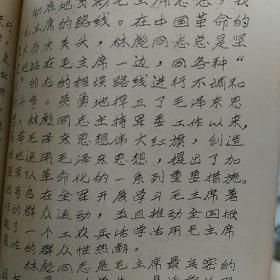 彻底地贯彻毛主席思想，我
主席的路线。在中国革命的
大历史关头，林彪同志总是坚
地站在毛主席一边，同各种“
”右的错误路线进行不调和
斗争，英勇地捍卫了毛泽东思
林彪同志主持军委工作以来，
毛泽东思想伟大红旗，创造
地运用毛泽东思想，提出了加
军队革命化的一系列重要措施。
号召在全军开展学习毛主席著
的群众运动，并且推动全国掀
了一个工农兵活学活用毛泽东
的群众性热潮。
林彪同志是毛主席最亲密的